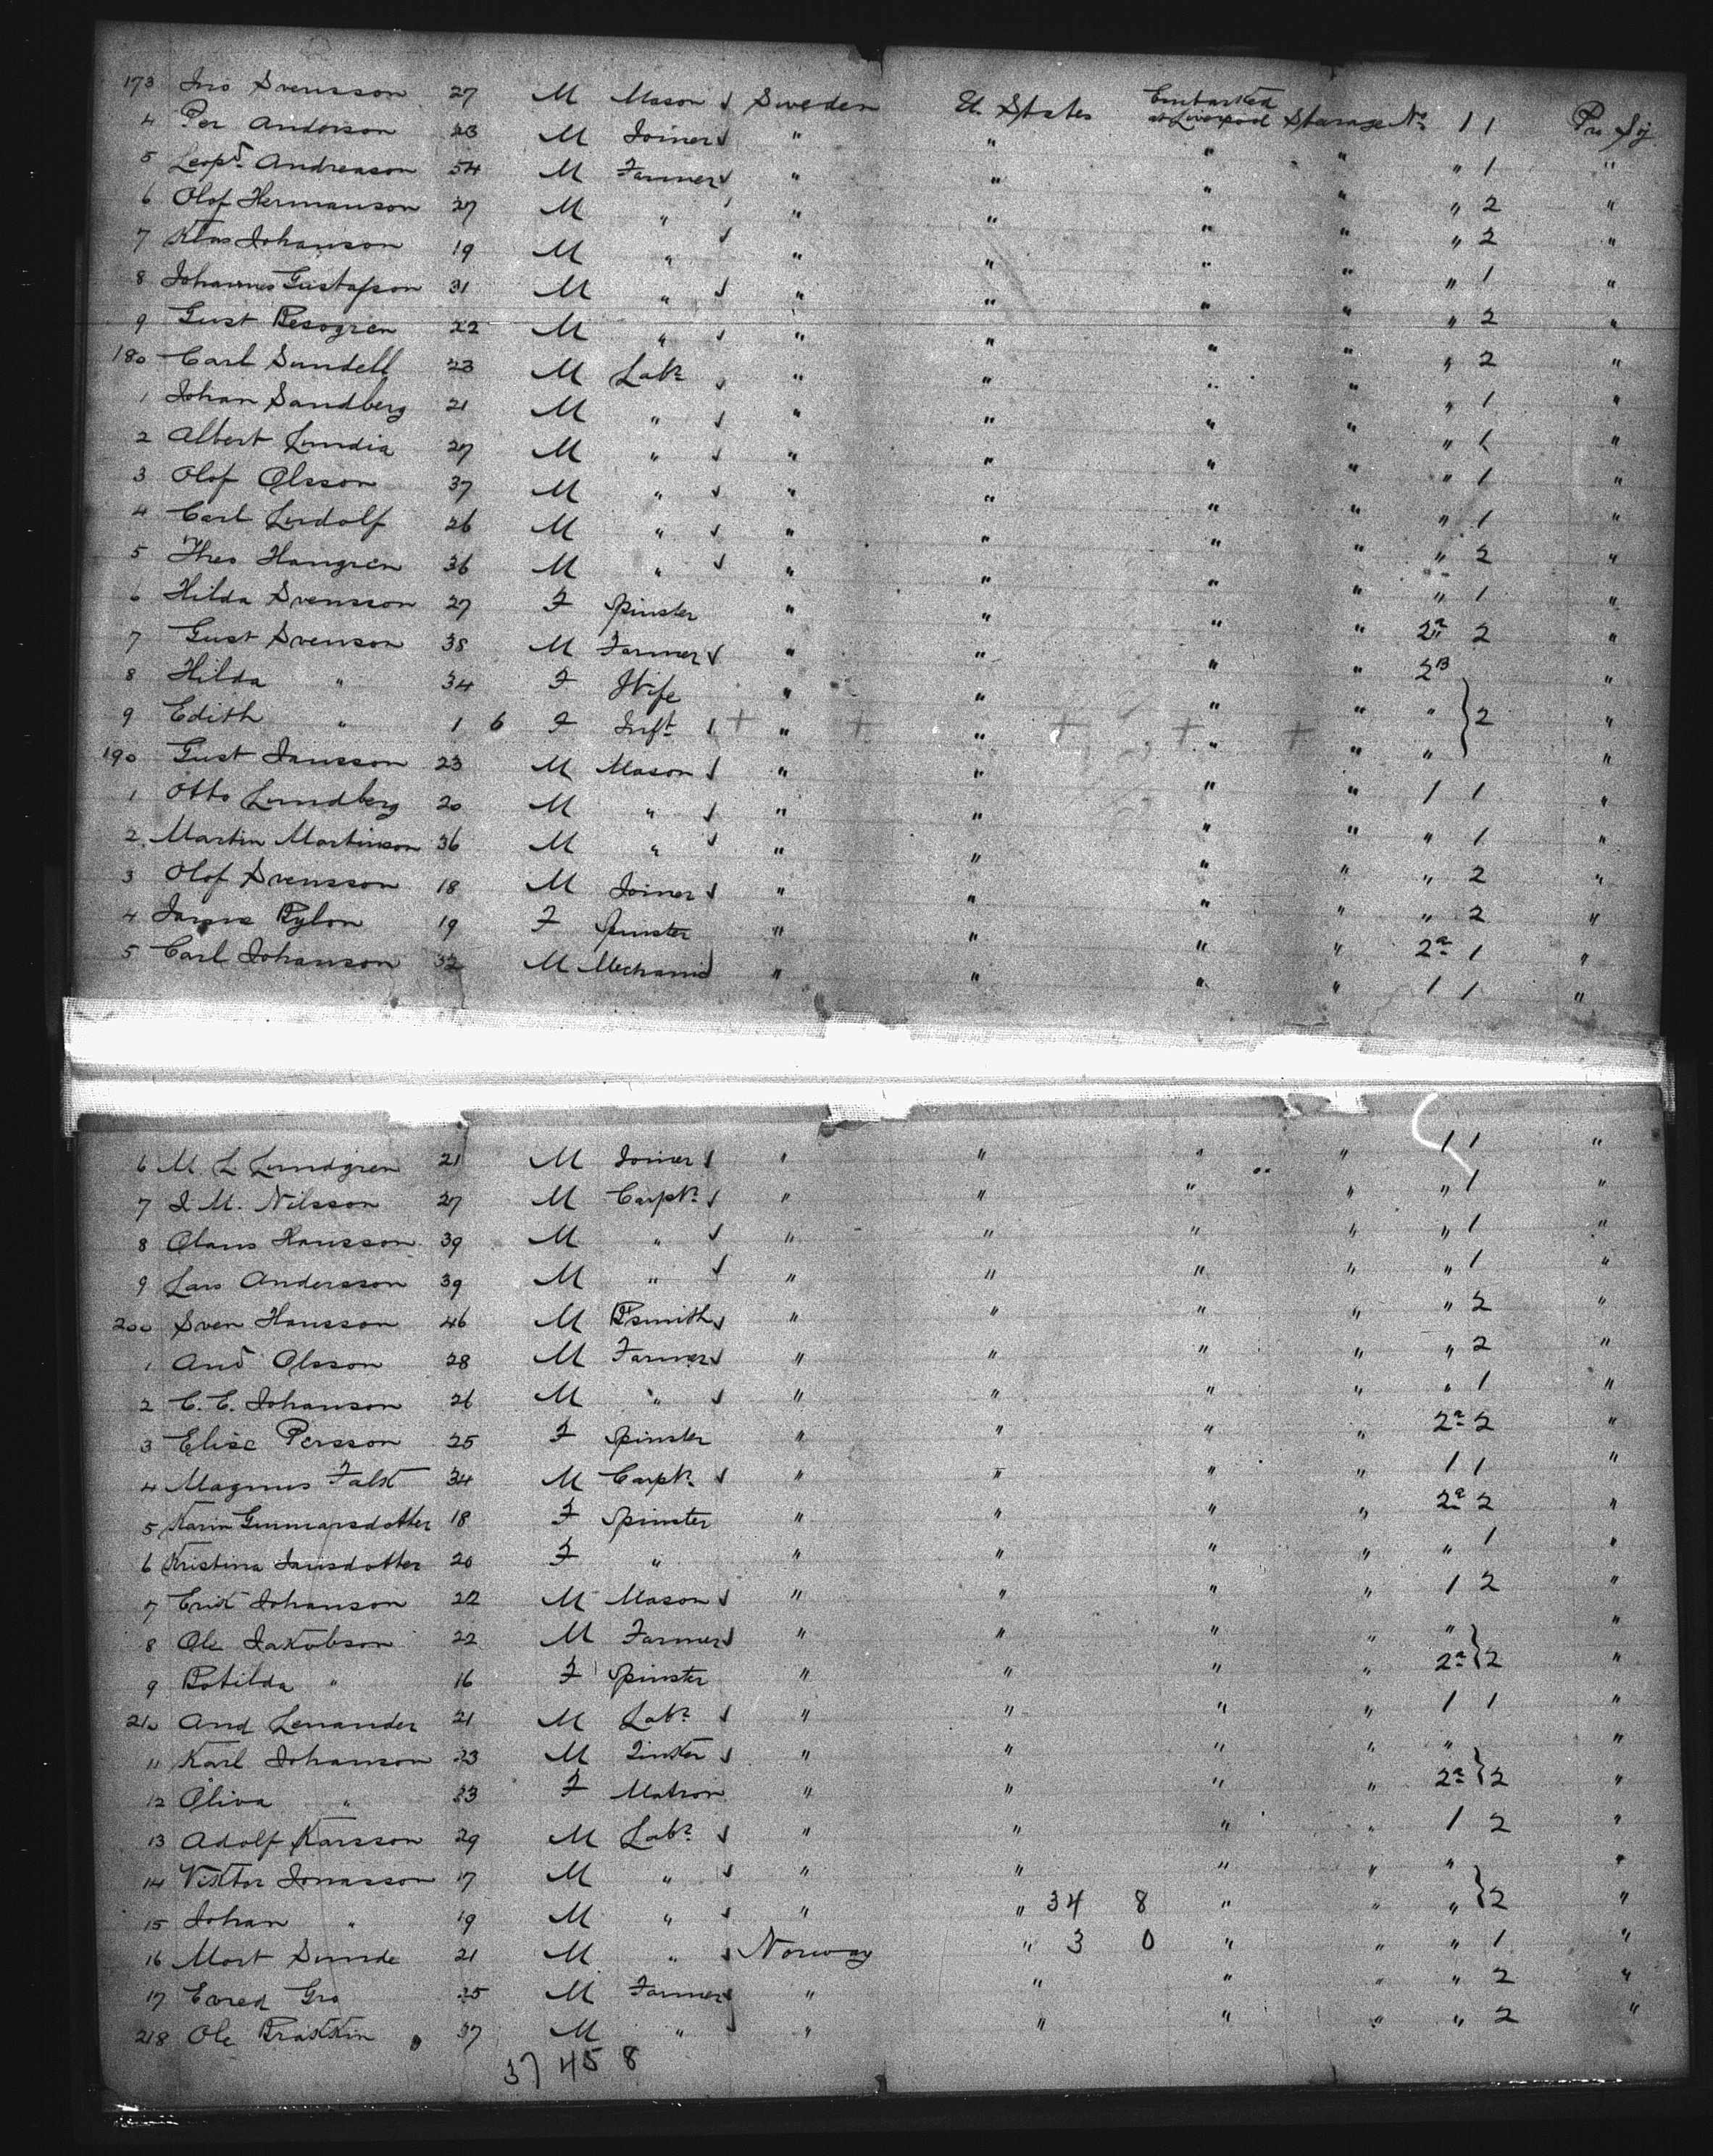 173 Jno Svensson 27 M Mason Sweden U. States Embarked at Liverpool Steerage No 1 1 Pro Soj
4 Per Anderson 23 M Joiner " " " " " 1 "
5 Leopd Andreason 54 M Farmer " " " " " 2 "
6 Olof Hermanson 27 M " " " " " " 2 "
7 Klas Johanson 19 M " " " " " " 1 "
8 Johannes Gustafson 31 M " " " " " " 2 "
9 Gust 22 M " " " " " " 2 "
180 Carl Sundell 23 M Labr " " " " " 1 "
1 Johan Sandberg 21 M " " " " " " 1 "
2 Albert Lundia 27 M " " " " " " 1 "
3 Olof Olsson 37 M " " " " " " 1 "
4 Carl Lindolf 26 M " " " " " " 2 "
5 Theo Hangren 36 M " " " " " " 1 "
6 Hilda Svensson 27 F Spinster " " " " 2a 2 "
7 Gust Svenson 38 M Farmer " " " " 2B "
8 Hilda " 34 F Wife " " " " " 2 "
9 Edith " 1 6 F Inft " " " " " "
190 Gust Jansson 23 M Mason " " " " 1 1 "
1 Otto Lundberg 20 M " " " " " " 1 "
2 Martin Martinson 36 M " " " " " " 2 "
3 Olof Svensson 18 M Joiner " " " " " 2 "
4 Rylon 19 F Spinster " " " " 2a 1 "
5 Carl Johanson 32 M Mechanic " " " " 1 1 "
6 M. L Lundgren 21 M Joiner " " " " 1 1 "
7 J M. Nilsson 27 M Carptr " " " " " 1 "
8 Olaus Hansson 39 M " " " " " " 1 "
9 Lars Andersson 39 M " " " " " " 1 "
200 Sven Hansson 46 M Bsmith " " " " " 2 "
1 And Olsson 28 M Farmer " " " " " 2 "
2 C. E. Johanson 26 M " " " " " " 1 "
3 Elise Persson 25 F Spinster " " " " 2a 2 "
4 Magnus Falk 34 M Carptr " " " " 1 1 "
5 Karin Gunnarsdotter 18 F Spinster " " " " 2a 2 "
6 Kristina Jansdotter 20 F " " " " " " 1 "
7 Erik Johanson 22 M Mason " " " " 1 2 "
8 Ole Jakobson 22 M Farmer " " " " " "
9 Botilda " 16 F Spinster " " " " 2a 2 "
210 And Lenander 21 M Labr " " " " 1 1 "
11 Karl Johanson 23 M Tinker " " " " " "
12 Oliva " 23 F Matron " " " " 2a 2 "
13 Adolf Karsson 29 M Labr " " " " 1 2 "
14 Viktor Jonasson 17 M " " " " " " "
15 Johan " 19 M " " " 34 8 " " " 2 "
16 Mort Sunde 21 M " Norway " 3 0 " " " 1 "
17 Evred Gro 25 M Farmer " " " " " 2 "
218 Ole 37 M " " " " " " 2 "
37 45 8